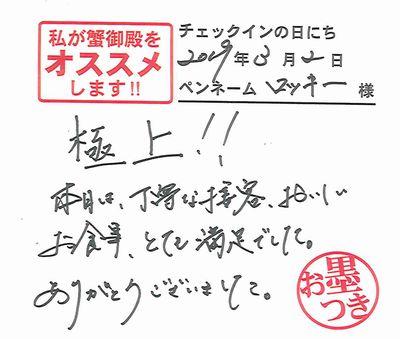 私が蟹御殿を
オススメ
します!!
チェックインの日にち
2019年3月2日
ペンネーム ロッキー 様
極上!!
本日は、丁寧な接客、おいしい
お食事、とても満足でした。
ありがとうございました。
お墨つき